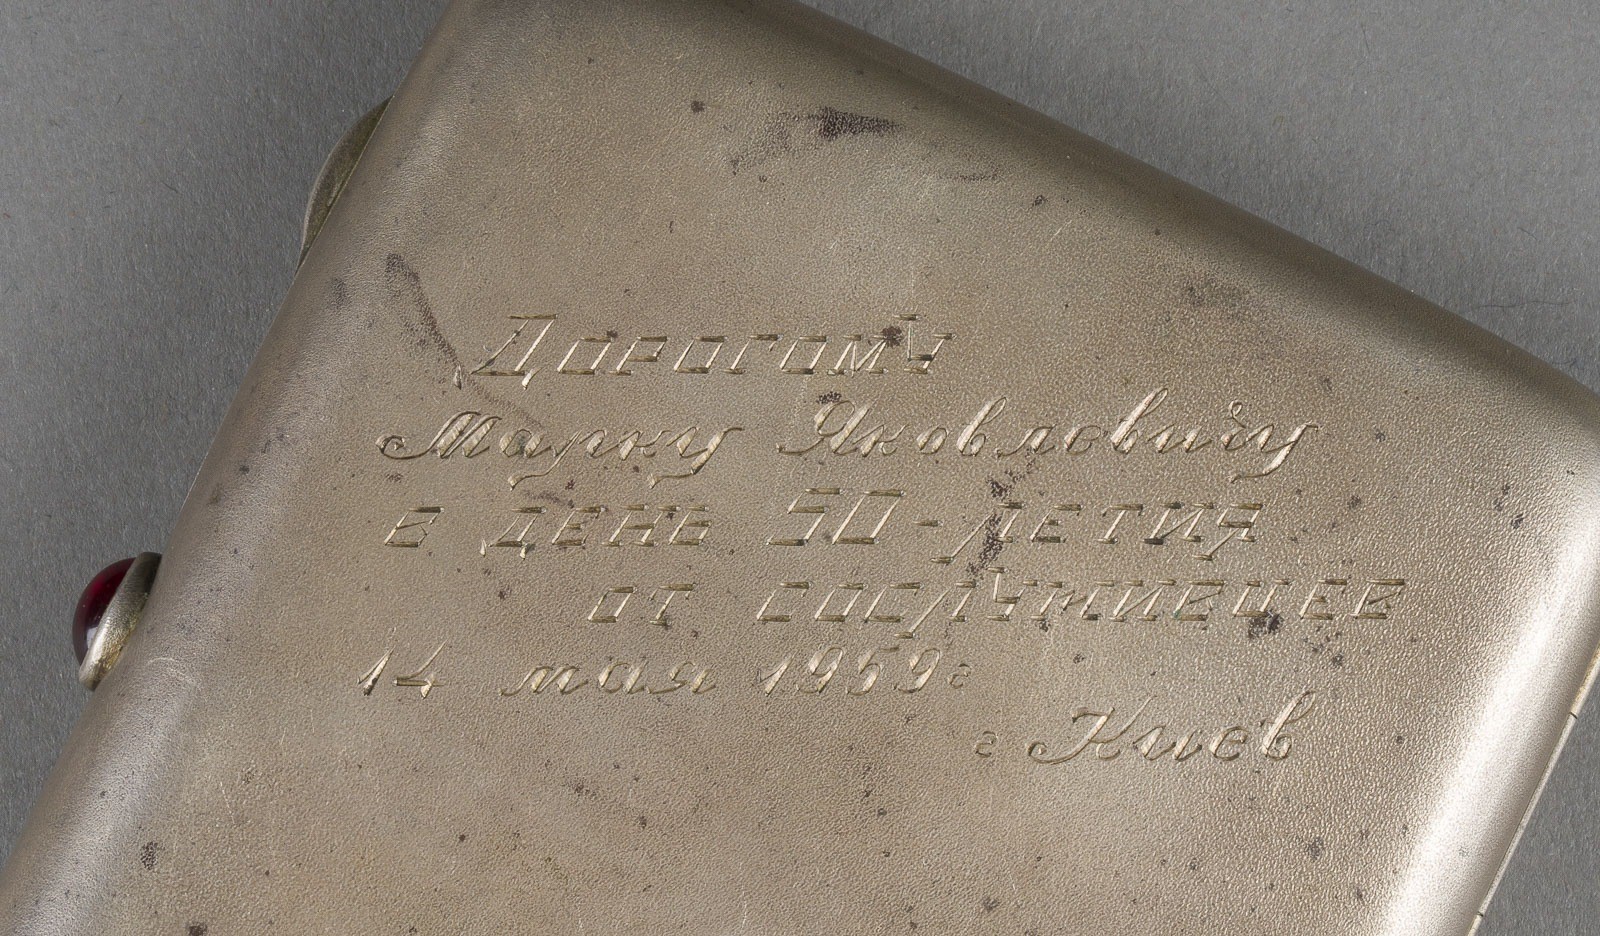 Дорогому
Марку Яковлевичу
в день 50-летия
от сослуживцев
14 мая 1959 г
г Киев